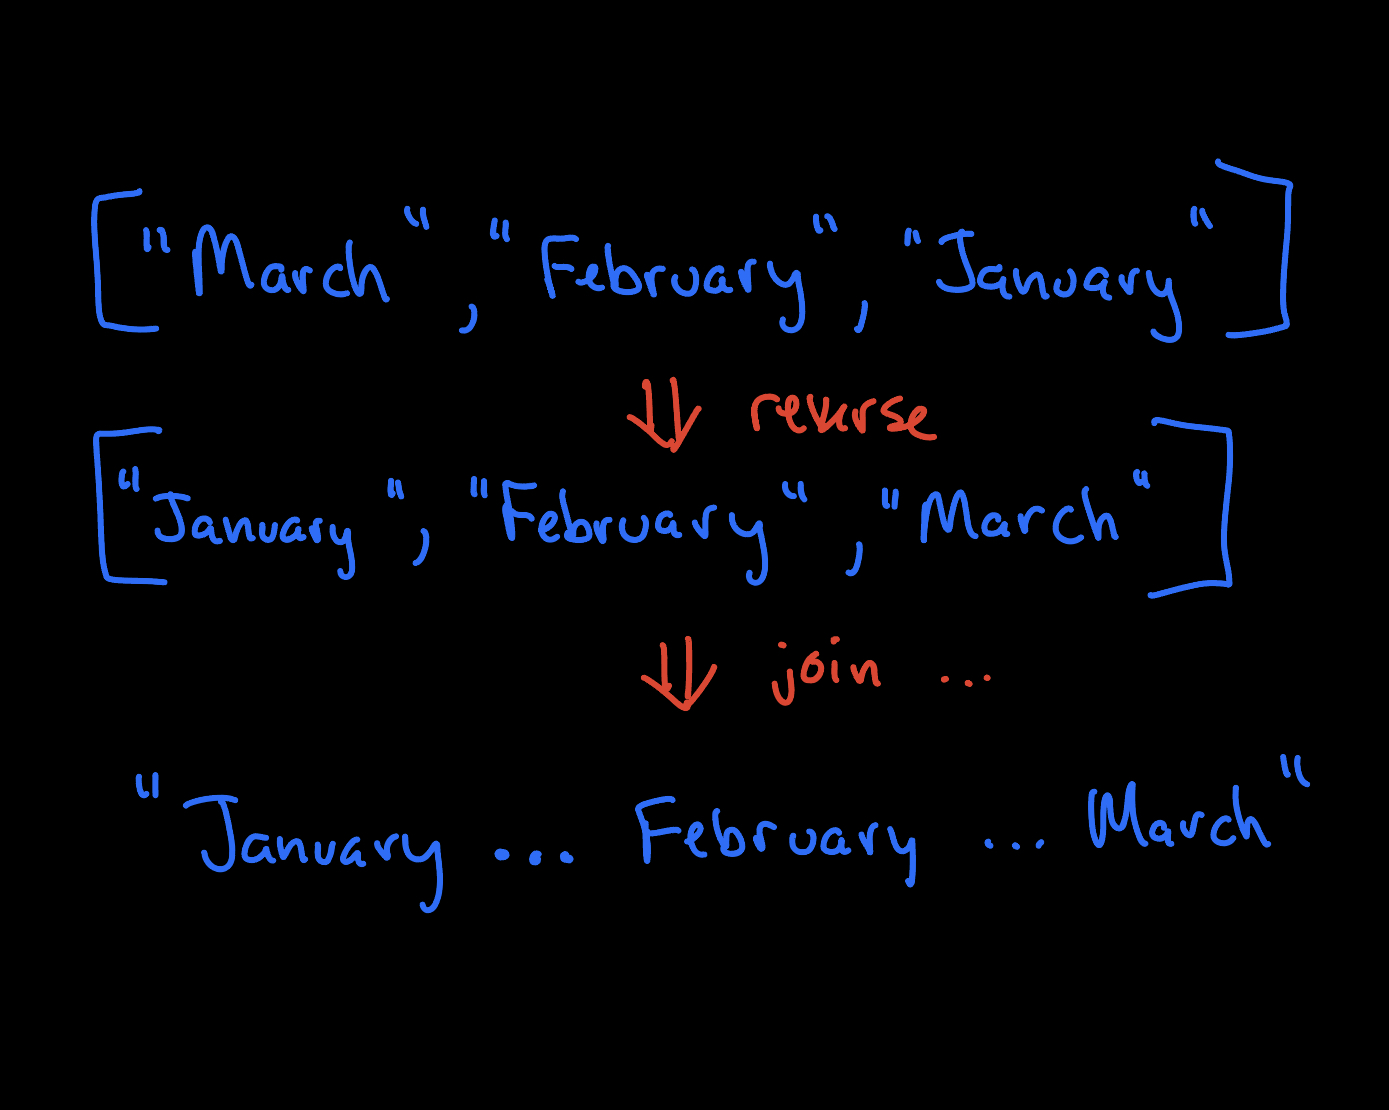 ["March", "February", "January"]
⇓ reverse
["January", "February", "March"]
⇓ join ...
"January ... February ... March"